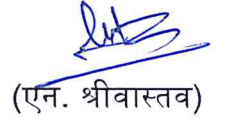 (एन. श्रीवास्तव)